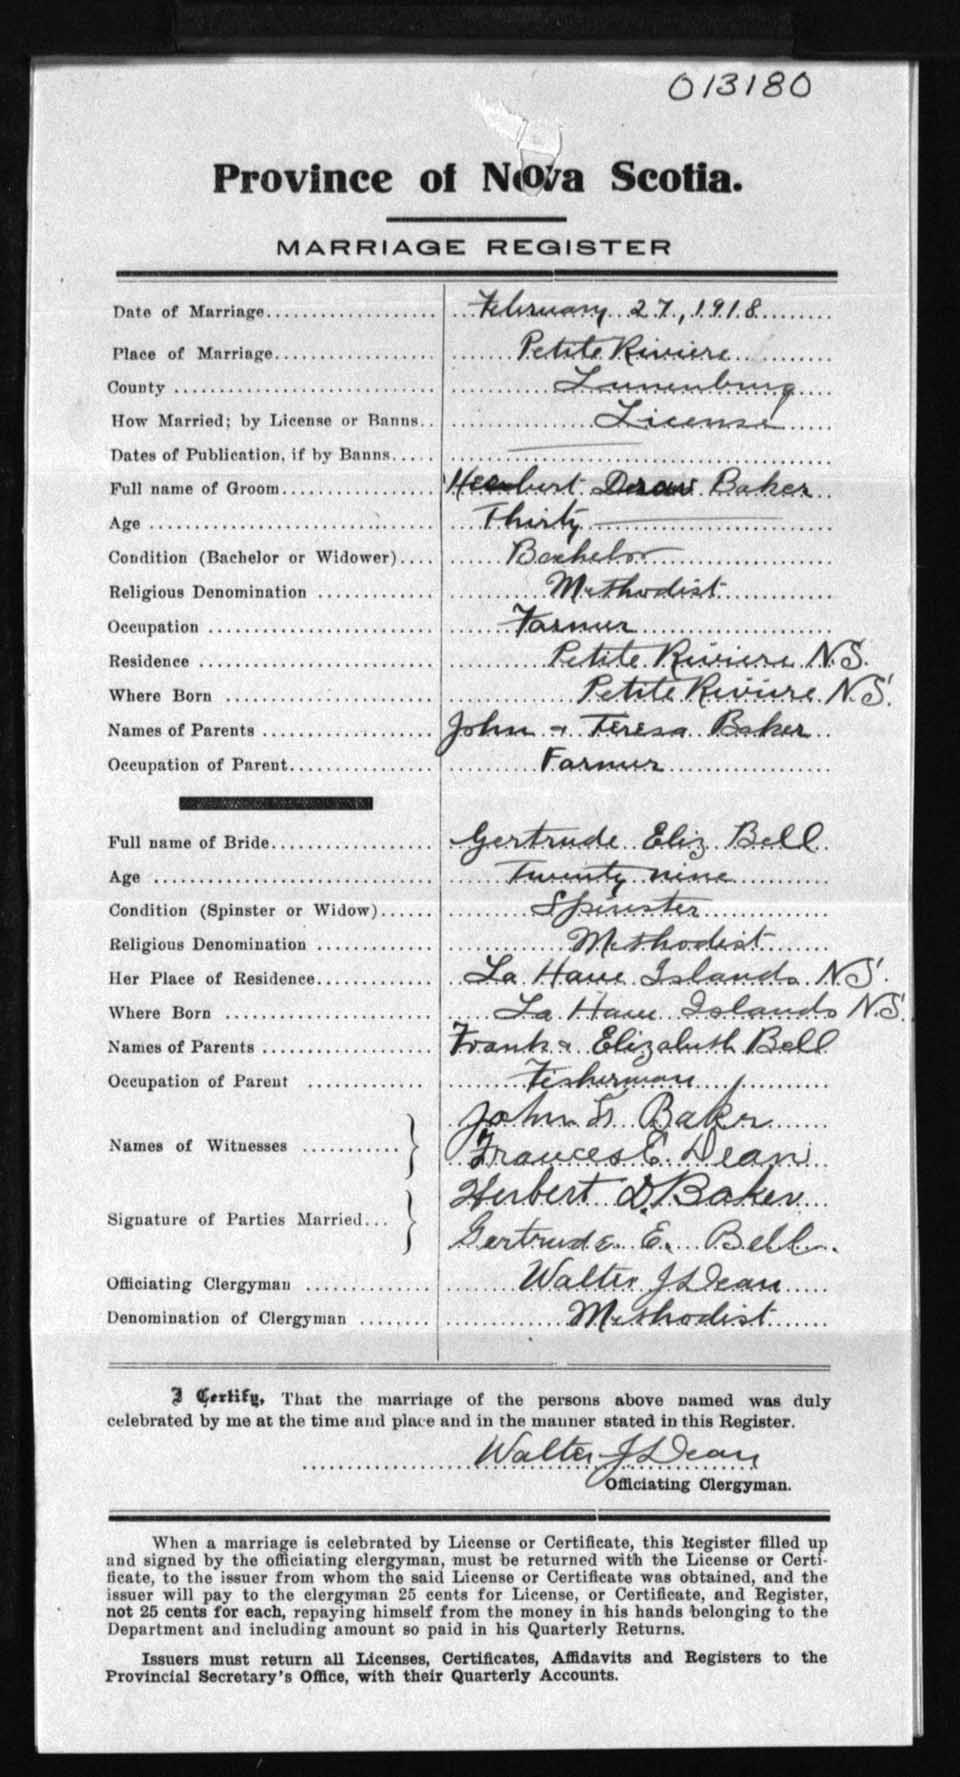 013180
Province of Nova Scotia.
MARRIAGE REGISTER
Date of Marriage February 27, 1918
Place of Marriage Petite Riviere
County Lunenburg
How Married; by License or Banns License
Dates of Publication, if by Banns
Full name of Groom Herbert Baker
Age Thirty
Condition (Bachelor or Widower) Bachelor
Religious Denomination Methodist
Occupation Farmer
Residence Petite Riviere N.S.
Where Born Petite Riviere N.S.
Names of Parents John & Teresa Baker
Occupation of Parent Farmer
Full name of Bride Gertrude Eliz Bell
Age Twenty nine
Condition (Spinster or Widow) Spinster
Religious Denomination Methodist
Her Place of Residence La Have Islands N.S.
Where Born La Have Islands N.S.
Names of Parents Frank & Elizabeth Bell
Occupation of Parent Fisherman
John Baker
Names of Witnesses
Frances E. Dean
Herbert D. Baker
Signature of Parties Married
Gertrude E. Bell
Officiating Clergyman Walter J Dean
Denomination of Clergyman Methodist
I Certify, That the marriage of the persons above named was duly
celebrated by me at the time and place and in the manner stated in this Register.
Walter J Dean
Officiating Clergyman.
When a marriage is celebrated by License or Certificate, this Register filled up
and signed by the officiating clergyman, must be returned with the License or Certi-
ficate, to the issuer from whom the said License or Certificate was obtained, and the
issuer will pay to the clergyman 25 cents for License, or Certificate, and Register,
not 25 cents for each, repaying himself from the money in his hands belonging to the
Department and including amount so paid in his Quarterly Returns.
Issuers must return all Licenses, Certificates, Affidavits and Registers to the
Provincial Secretary's Office, with their Quarterly Accounts.